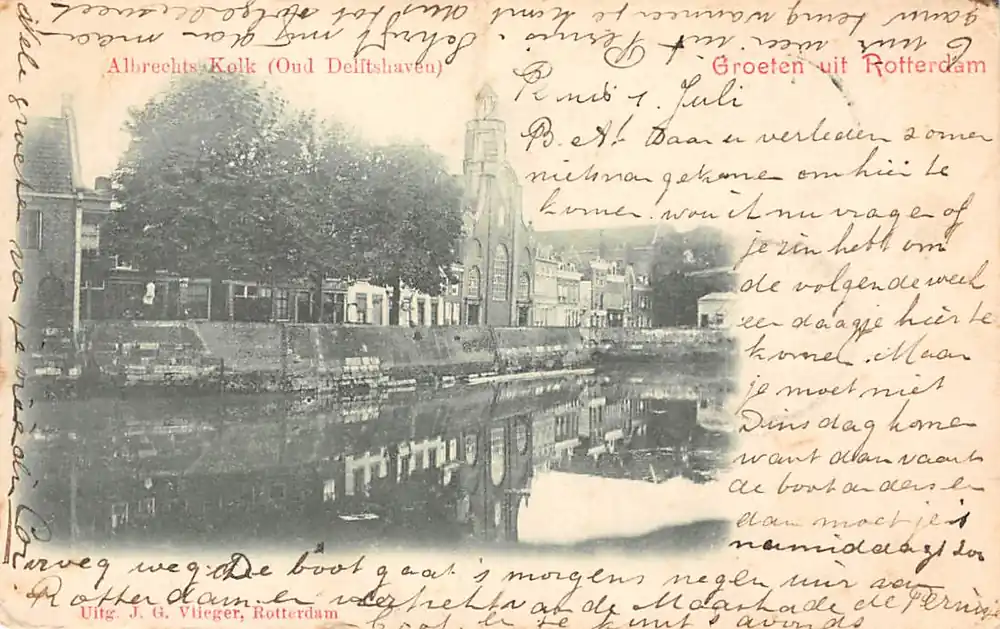 Albrechts Kolk (Oud Delftshaven)
Groeten uit Rotterdam
Pernis 1. Juli
B. A! Daar er verleden zomer
niets van gekomen om hier te
komen. wou ik nu vragen of
je zin hebt om
de volgende week
een daagje hier te
komen. Maar
je moet niet
Dinsdag komen
want dan vaart
de boot anders en
dan moet je is
namiddags
weg De boot gaat 's morgens negen uur van
Rotterdam en vertrekt van de Maaskade de
boot. en je kunt s avonds
6 uur weer uit Pernis
gaan terug wanneer je komt
Schrijf mij dan maar
dus tot
Vele groeten van je vriendin Cor
Uitg. J. G. Vlieger, Rotterdam